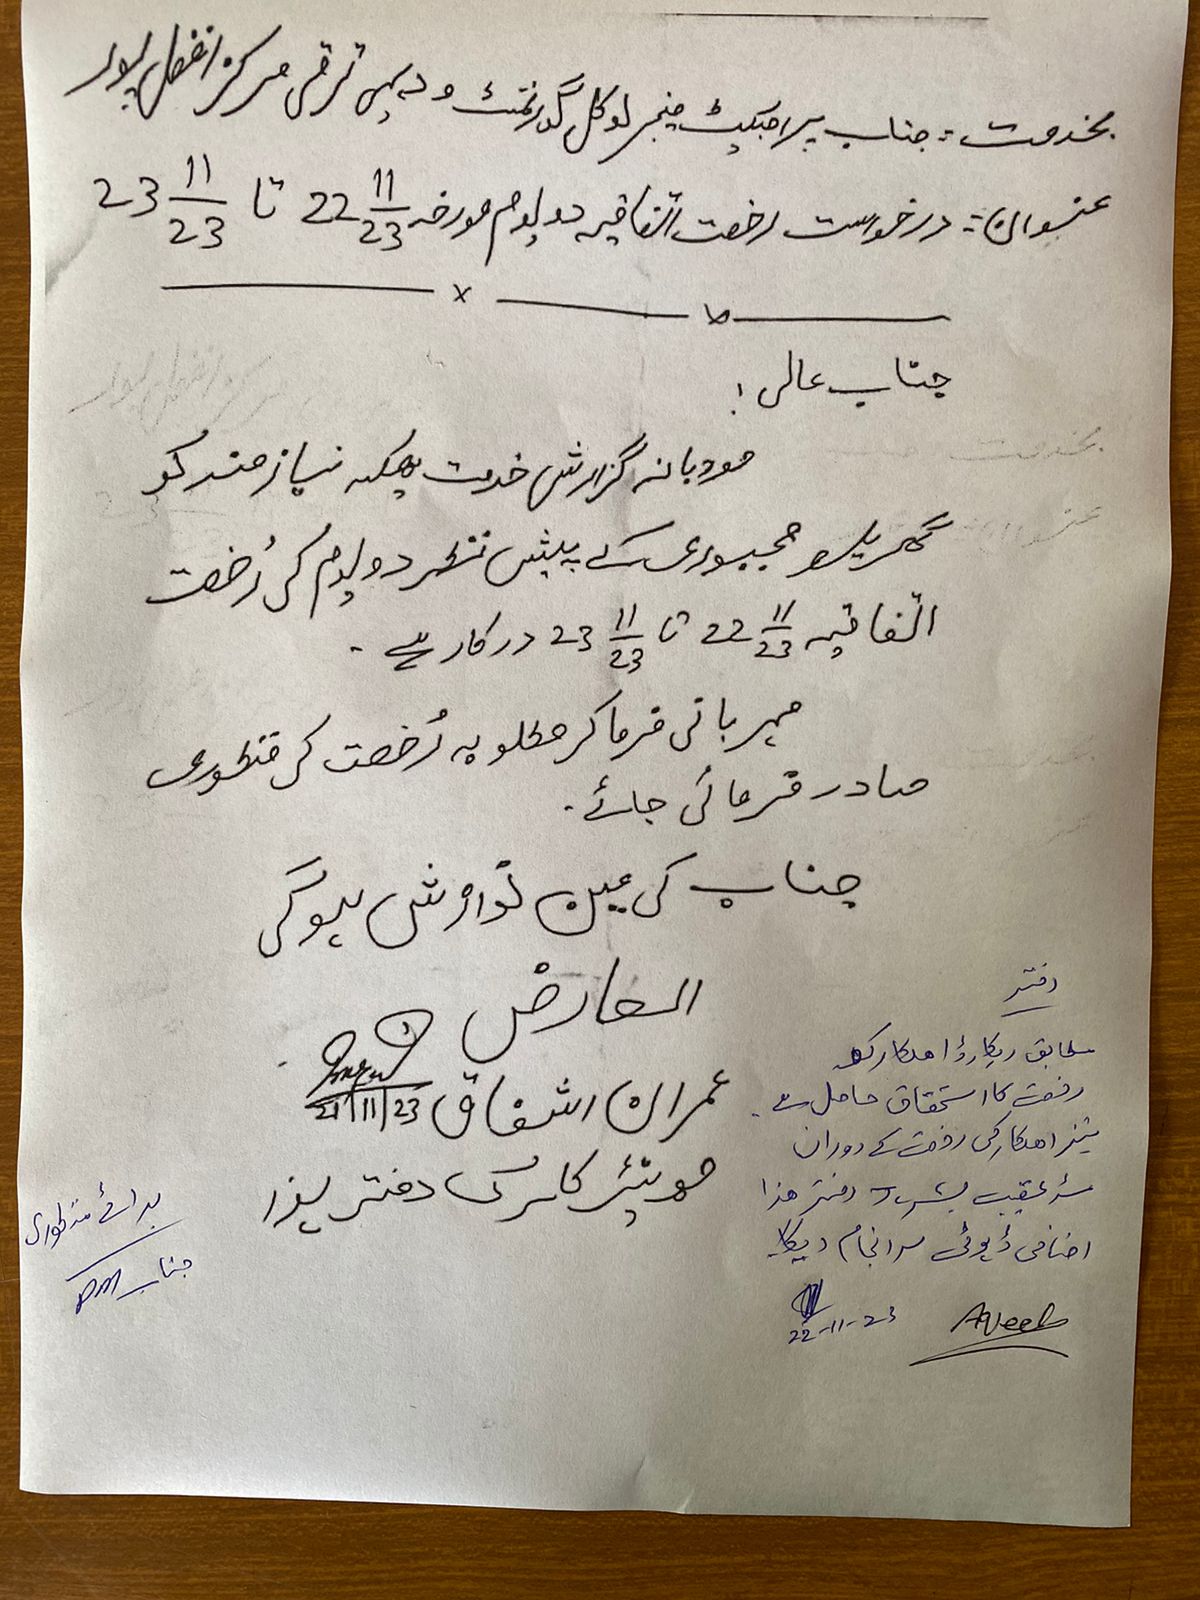 بخدمت :۔ جناب پراجیکٹ منیجر لوکل گورنمنٹ و دیہی ترقی مرکز افضل پور
عنوان :۔ درخواست رخصت اتفاقیہ دو یوم مورخہ 22 11/23 تا 23 11/23
جناب عالی !
مودبانہ گزارش خدمت ہیکہ نیاز مند کو
گھریلو مجبوری کے پیش نظر دو یوم کی رُخصت
اتفاقیہ 22 11/23 تا 23 11/23 درکار ہے ۔
مہربانی فرما کر مطلوبہ رُخصت کی منظوری
صادر فرمائی جائے ۔
جناب کی عین نوازش ہوگی
العارض
عمران اشفاق
21/11/23
جونئیر کلرک دفتر ہذا
دفتر
مطابق ریکارڈ اہلکار کو
رخصت کا استحقاق حاصل ہے ۔
نیز اہلکار کی رخصت کے دوران
دفتر ھذا
اضافی ڈیوٹی سرانجام دیگا۔
22-11-23
برائے منظوری
جناب PM